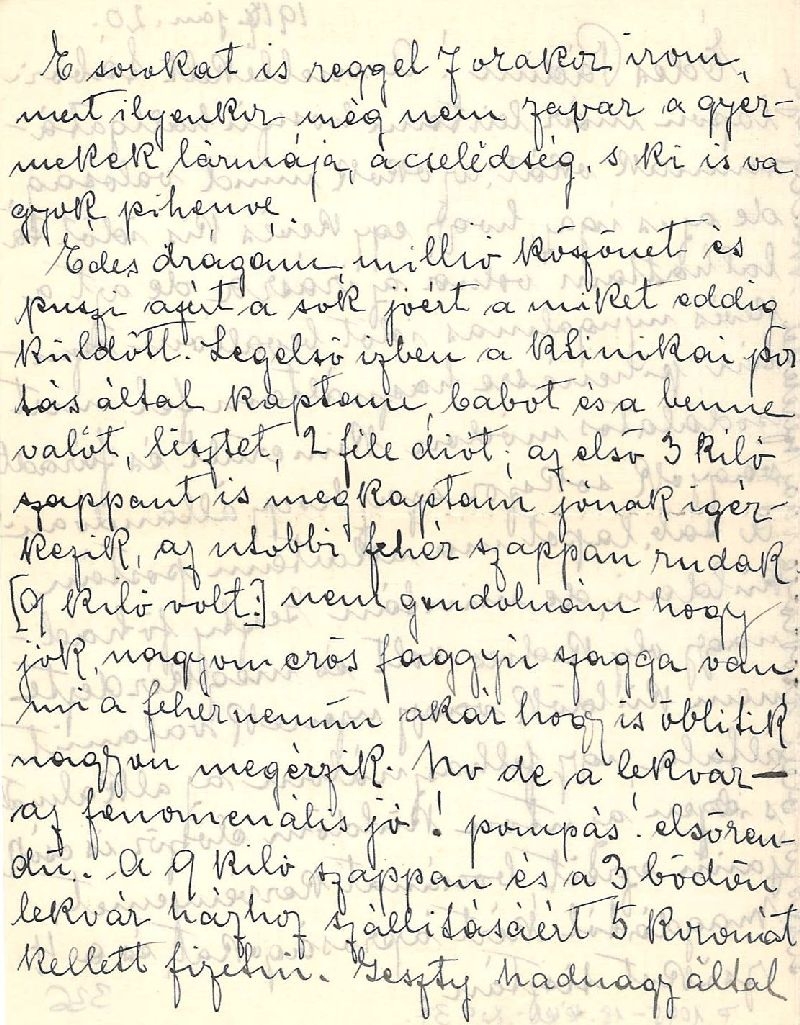 E sorokat is reggel 7 orakor irom,
mert ilyenkor még nem zavar a gyer-
mekek lármája, a cselédség, s ki is va
gyok pihenve.
Edes drágám, millió köszönet és
puszi azért a sok jóért a miket eddig
küldött. Legelsö izben a klinikai por
tás által kaptam, babot és a benne
valót, lisztet, 2 féle diót; az elsö 3 kiló
szappant is megkaptam jónak igér-
kezik, az utobbi fehér szappan rudak
[9 kiló volt:] nem gondolnám hogy
jók, nagyon erös faggyú szagga van
mi a fehérnemün akár hogy is öblitik
nagyon megérzik. No de a lekvár —
az fenomenális jó! pompás! elsören-
dü.. A 9 kiló szappan és a 3 bödön
lekvár házhoz szállitásáért 5 koronát
kellett fizetni. Geszty hadnagy által